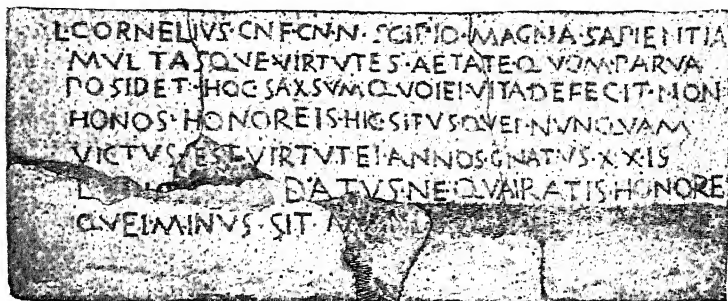 L·CORNELIVS·CN·F·CN·N·SCIPIO·MAGNA·SAPIENTIA
MVLTASQVE·VIRTVTES·AETATE·QVOM·PARVA
POSIDET·HOC·SAXSVM·QVOIEI·VITA·DEFECIT·NON
HONOS·HONORE·IS·HIC·SITVS·QVEI·NVNQVAM
VICTVS·EST·VIRTVTEI·ANNOS·GNATVS·XX·IS
DATVS·NE·QVAIRATIS·HONORE
QVEI·MINVS·SIT·